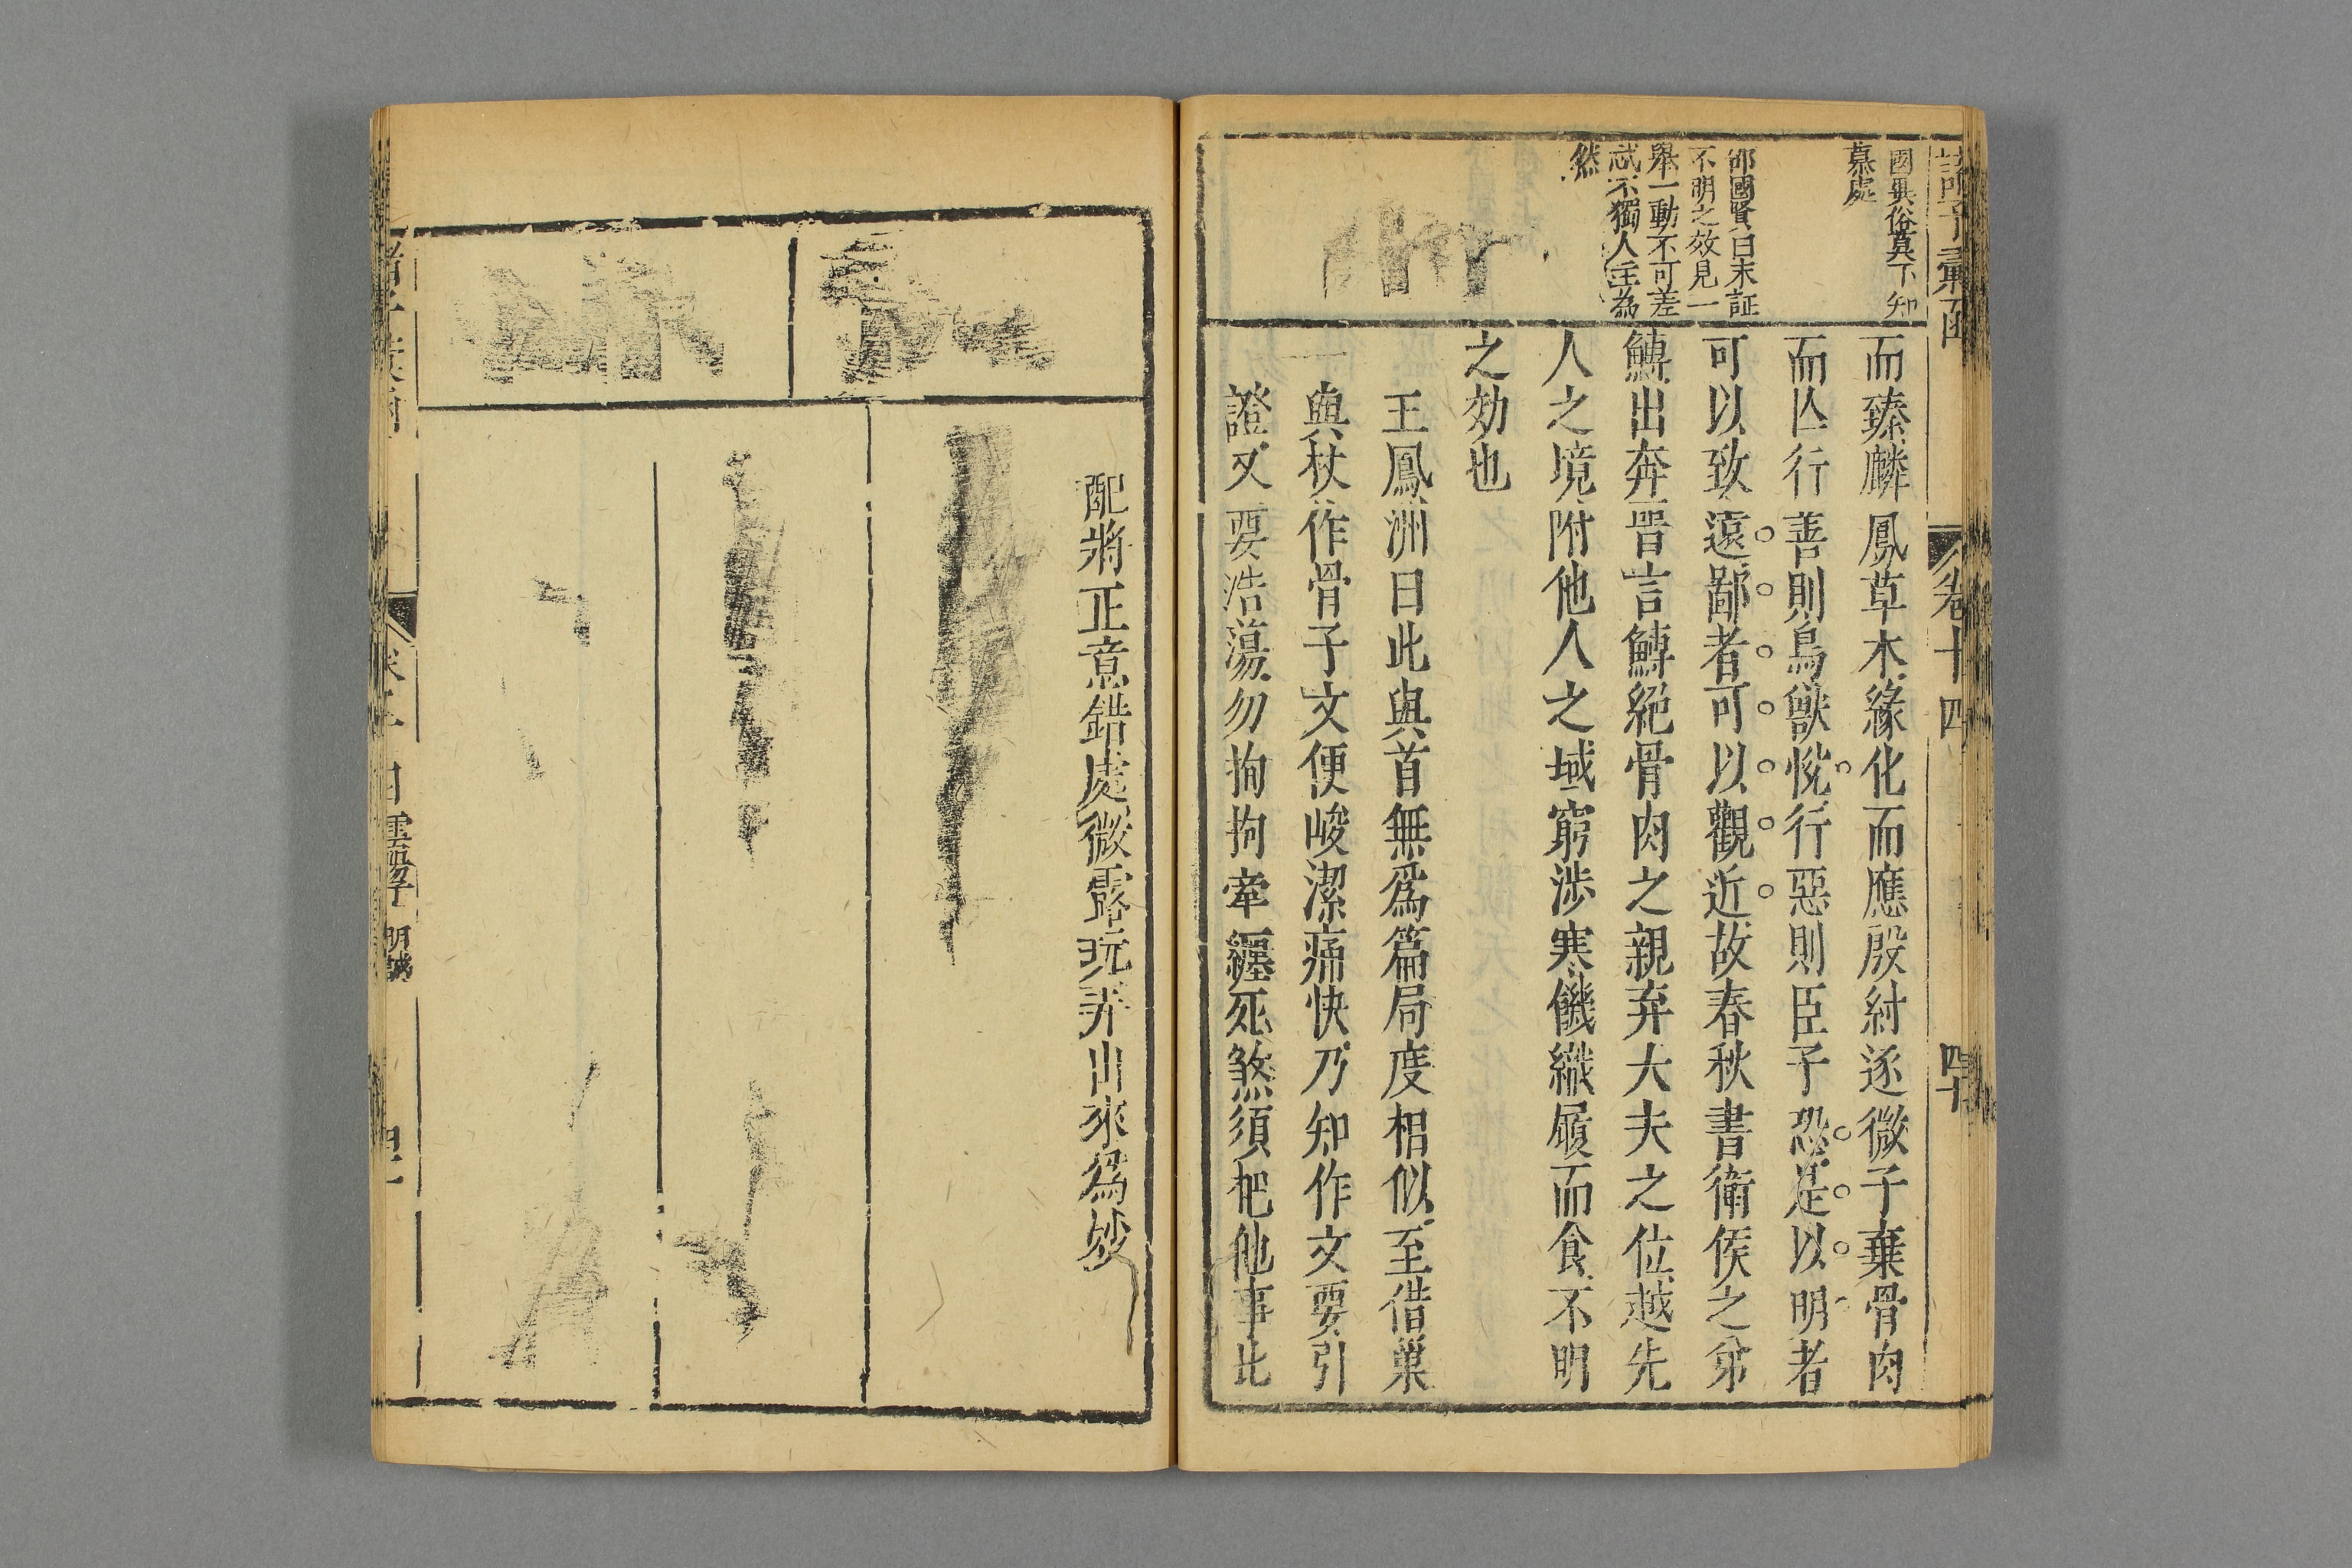 諸子彙函
卷十四
四十
國異俗莫不知
慕處
而臻麟鳳草木緣化而應殷紂逐微子棄骨肉
而亾行善則鳥獸悅行惡則臣子恐是以明者
可以致遠鄙者可以觀近故春秋書衛侯之弟
鱄出奔晋言鱄絕骨肉之親弃大夫之位越先
人之境附他人之域窮涉寒饑織履而食不明
之効也
邵國賢曰末証
不明之效見一
舉一動不可差
忒不獨人主為
然
王鳳洲曰此與首無爲篇局度相似至借巢
與杖作骨子文便峻潔痛快乃知作文要引
證又要浩蕩勿拘拘牽纏死煞須杷他事比
配將正意錯處微露玩弄出來爲妙
雲陽子
明誠